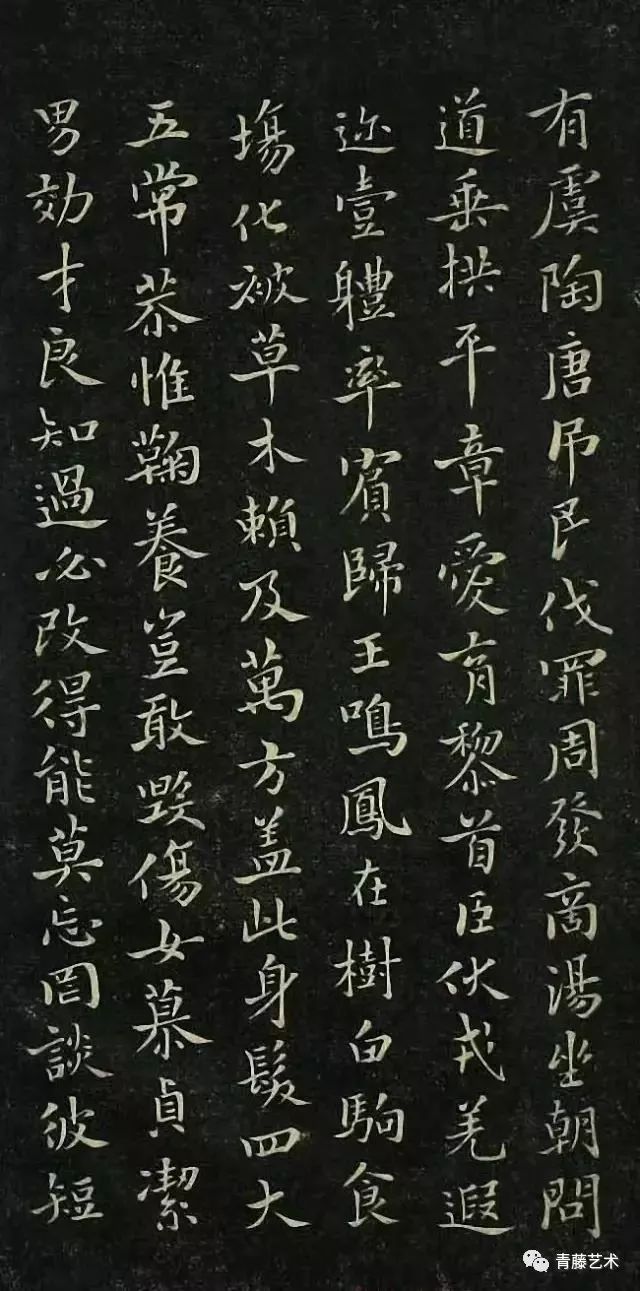 有虞陶唐吊民伐罪周發商湯坐朝問
道垂拱平章愛育黎首臣伏戎羌遐
迩壹軆率賓歸王鳴鳳在樹白駒食
塲化被草木賴及萬方盖此身髮四大
五常恭惟鞠養豈敢毀傷女慕貞潔
男効才良知過必改得能莫忘罔談彼短
青藤艺术